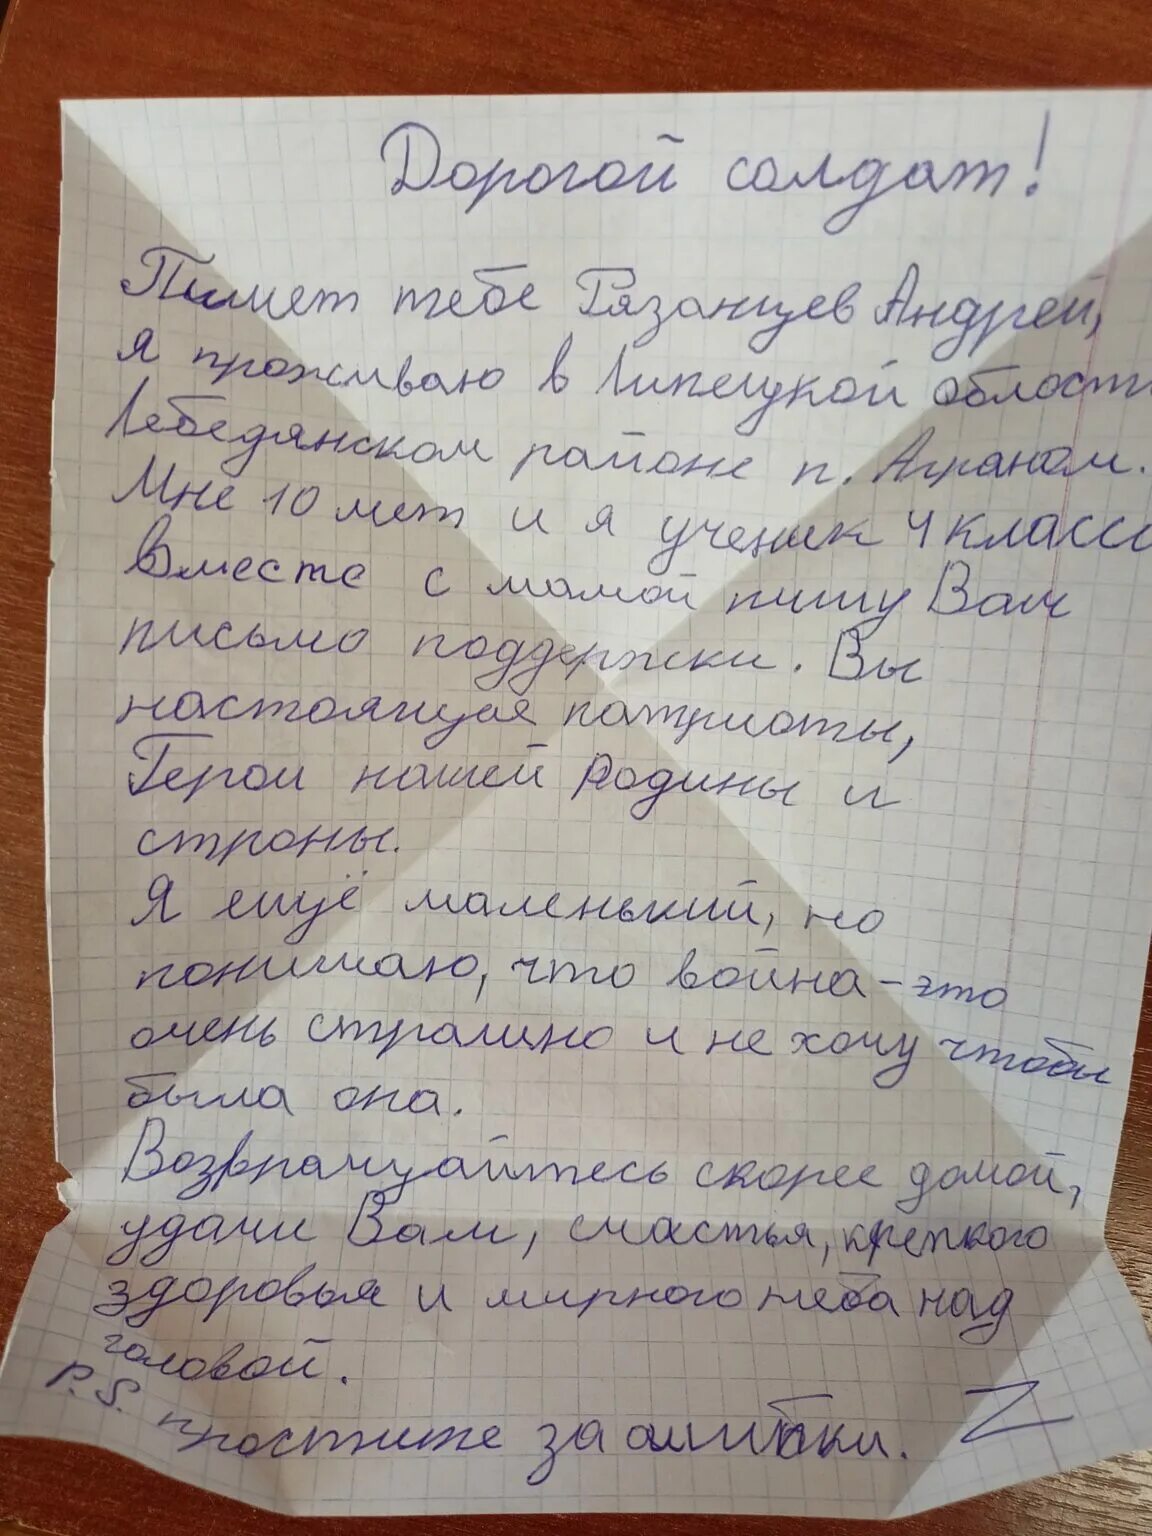 Дорогой солдат!
Пишет тебе Рязанцев Андрей,
я проживаю в Липецкой област
Лебедянском районе п. Агроном.
Мне 10 лет и я ученик 4 класса
Вместе с мамой пишу Вам
письмо поддержки. Вы
настоящие патриоты,
Герои нашей Родины и
строны.
Я ещё маленький, но
понимаю, что война - это
очень страшно и не хочу чтобы
была она.
Возвращуайтесь скорее домой,
удачи Вам, счастья, крепкого
здоровья и мирного неба над
головой.
P.S. простите за ошибки. Z